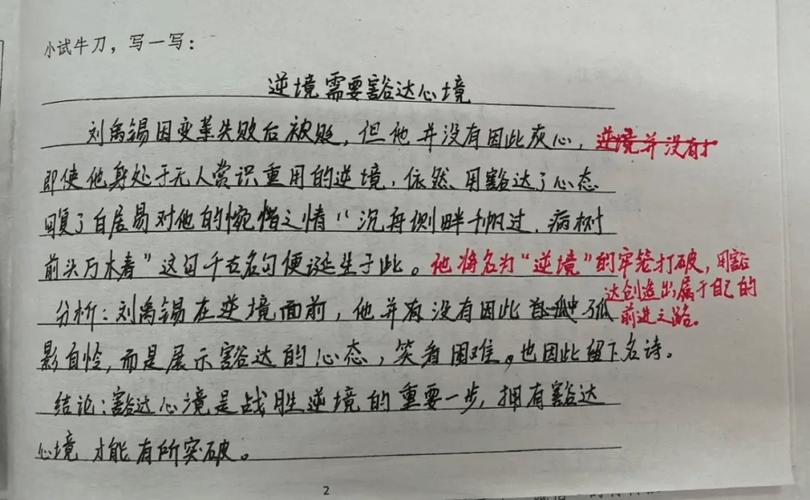 小试牛刀，写一写：
逆境需要豁达心境
刘禹锡因变革失败后被贬，但他并没有因此灰心，逆境并没有才
即使他身处于无人赏识重用的逆境，依然用豁达了心态
回复了白居易对他的惋惜之情“沉舟侧畔千帆过，病树
前头万木春”这句千古名句便诞生于此。他将名为“逆境”的牢笼打破，用豁
达创造出属于自己的
分析：刘禹锡在逆境面前，他并有没有因此 孤
前进之路。
影自怜，而是展示豁达的心态，笑看困难。也因此留下名诗。
结论：豁达心境是战胜逆境的重要一步，拥有豁达
心境才能有所突破。
2